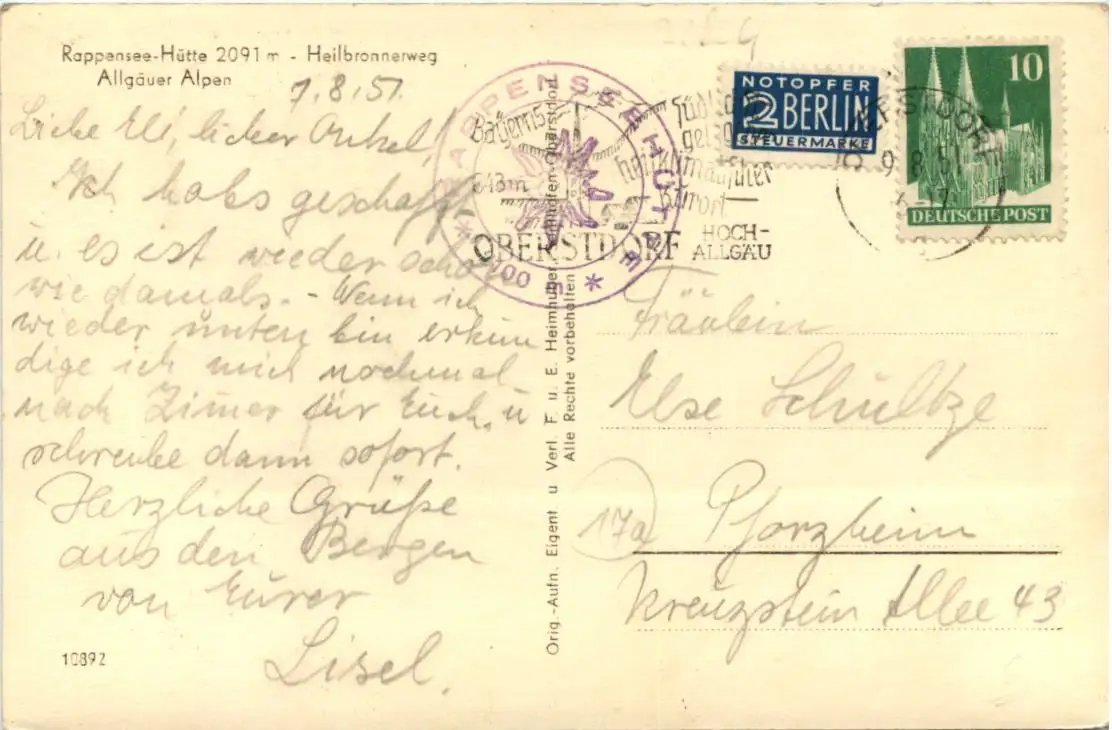 Rappensee-Hütte 2091 m - Heilbronnerweg
Allgäuer Alpen
7.8.51.
Liebe Eli, lieber Onkel!
Ich habs geschafft
u. es ist wieder schön
wie damals. - Wenn ich
wieder unten bin erkun
dige ich mich nochmal
nach Zimmer für Euch, u
schreibe dann sofort.
Herzliche Grüße
aus den Bergen
von Eurer
Lisel.
10892
RAPPENSEE HÜTTE
Bayerns
südlichster
heilklimatischer
Kurort
843m
OBERSTDORF
HOCH-
ALLGÄU
Orig.-Aufn. Eigent u Verl. F u. E. Heimhuber, Sonthofen-Oberstdorf
Alle Rechte vorbehalten
NOTOPFER
2 BERLIN
STEUERMARKE
OBERSTDORF
9.8.51
10
DEUTSCHE POST
Fräulein
Else Schültze
17a
Pforzheim
Kreuzstein Allee 43